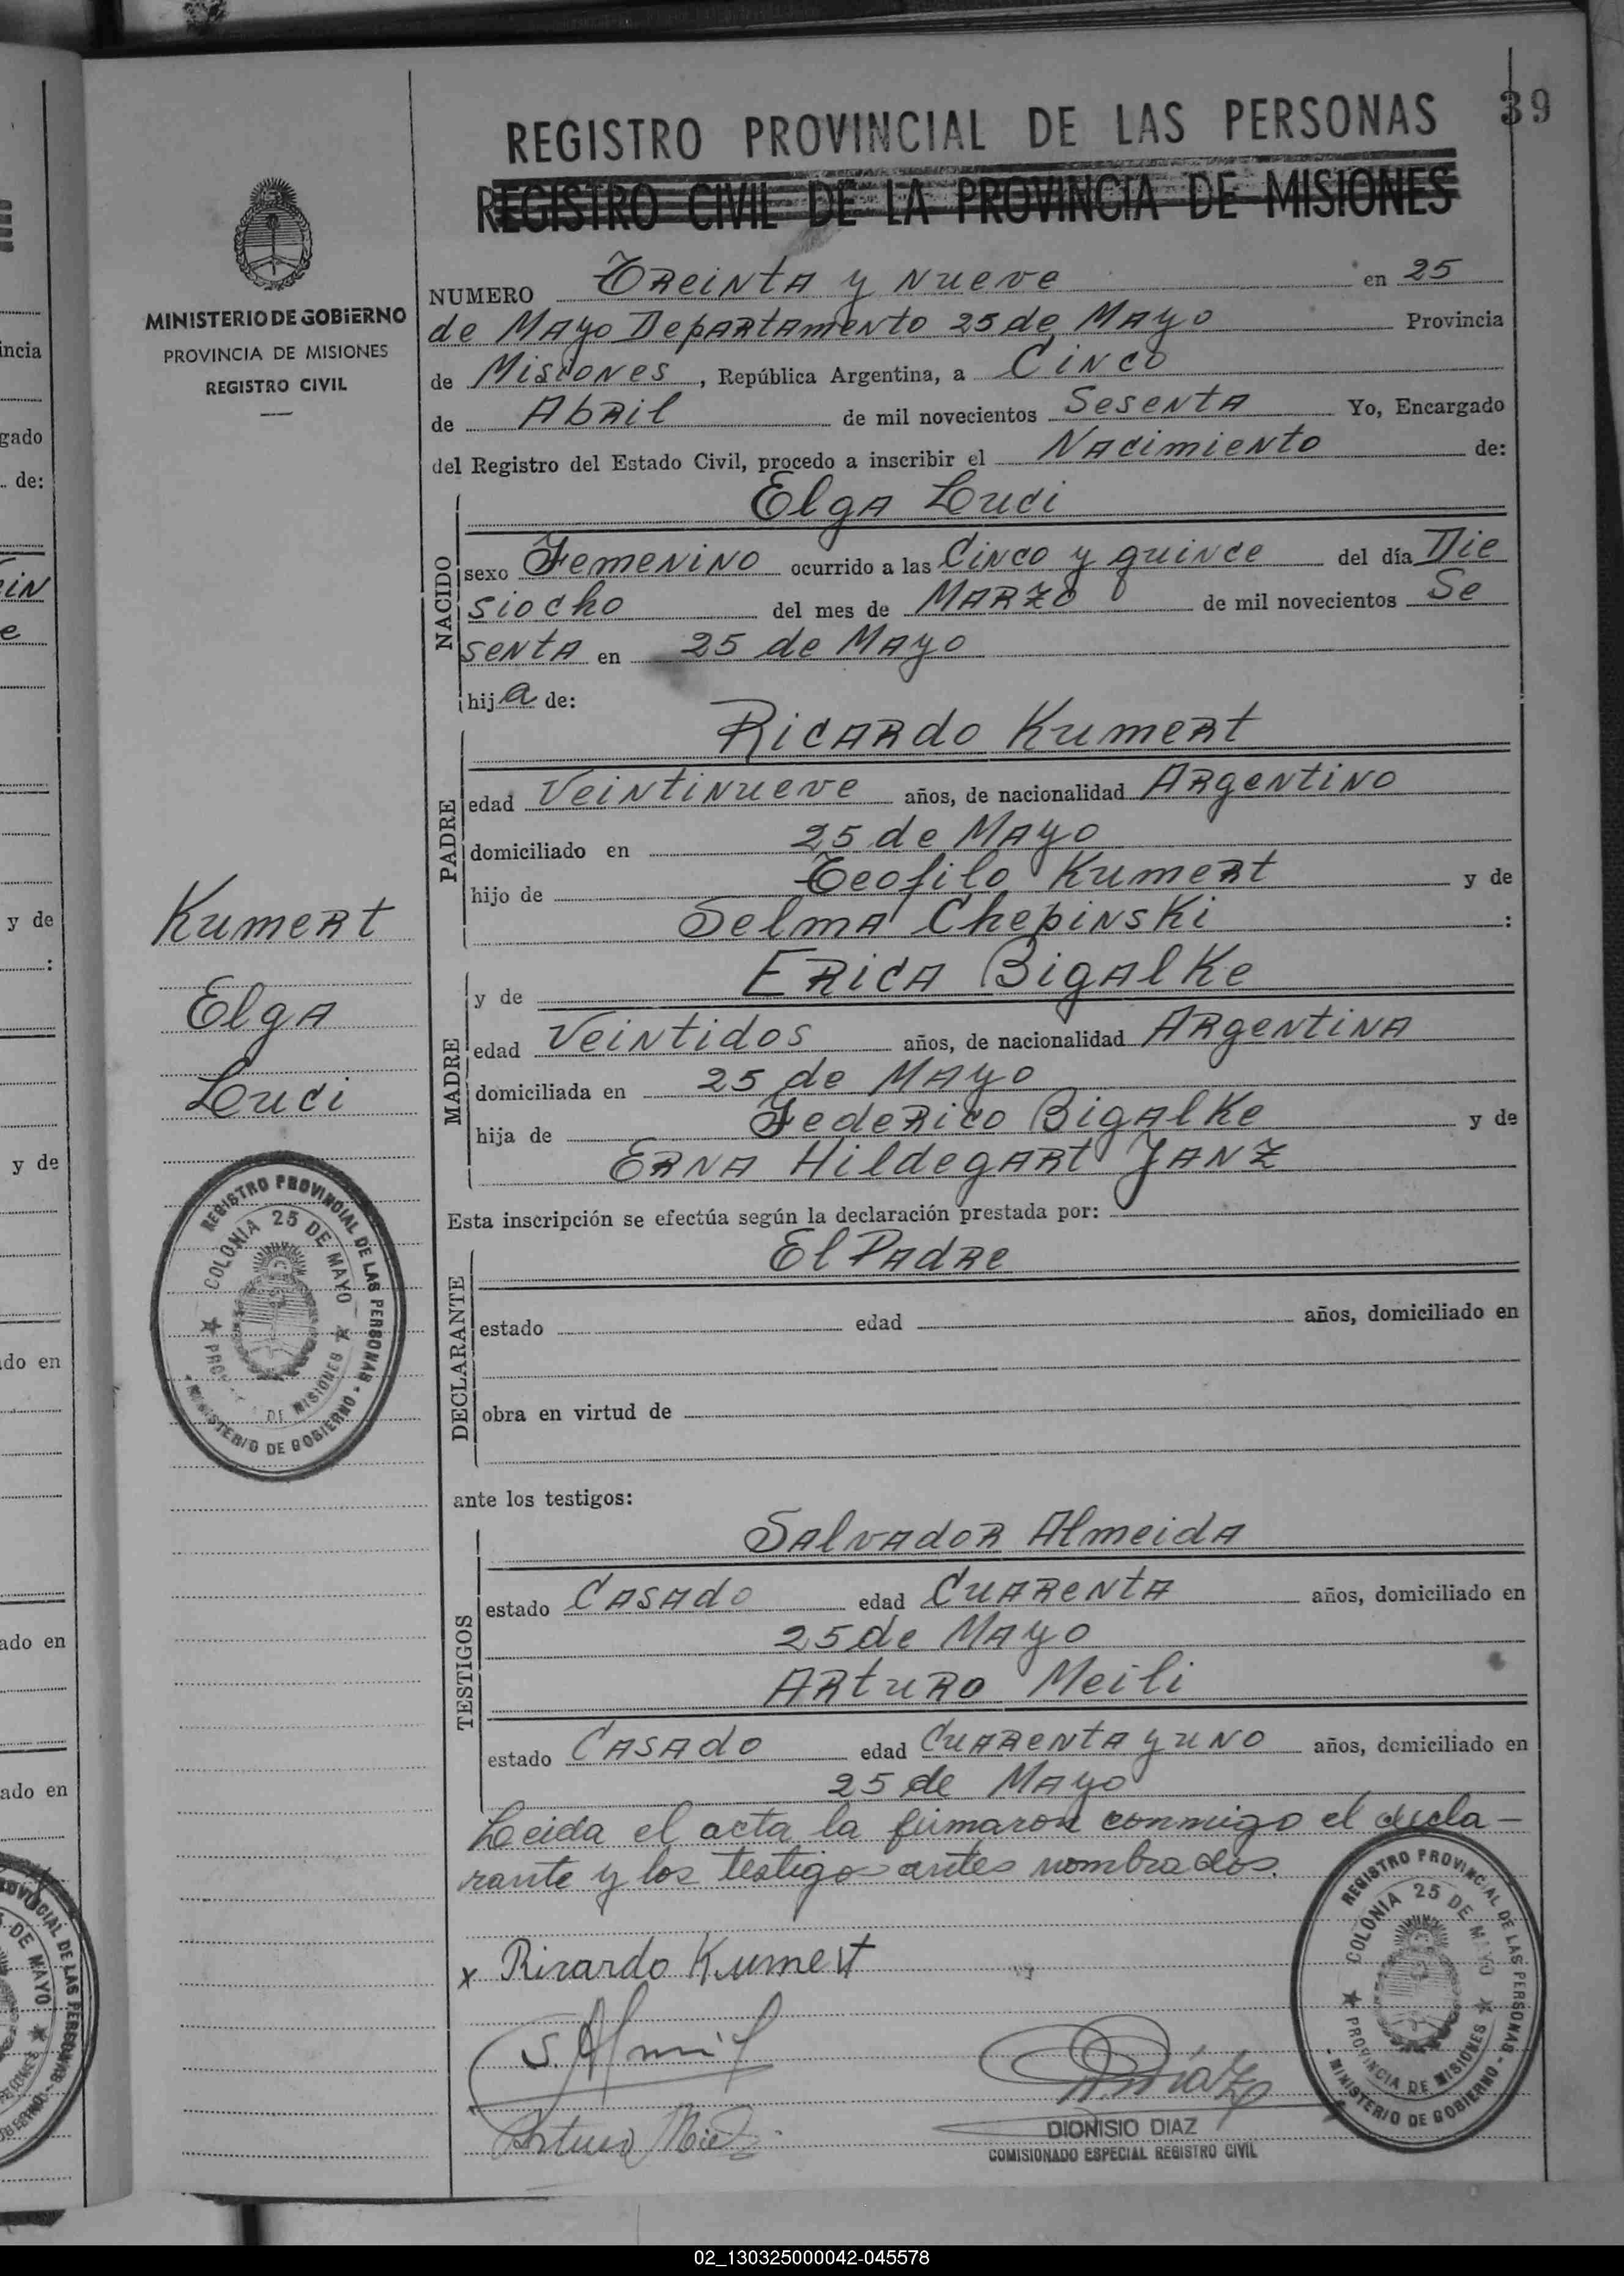 39
REGISTRO PROVINCIAL DE LAS PERSONAS
REGISTRO CIVIL DE LA PROVINCIA DE MISIONES
MINISTERIO DE GOBIERNO
PROVINCIA DE MISIONES
REGISTRO CIVIL
NUMERO Treinta y Nueve en 25
de Mayo Departamento 25 de Mayo Provincia
de Misiones, República Argentina, a Cinco
de Abril de mil novecientos Sesenta Yo, Encargado
del Registro del Estado Civil, procedo a inscribir el Nacimiento de:
NACIDO
Elga Luci
sexo Femenino ocurrido a las Cinco y quince del día Die
siocho del mes de Marzo de mil novecientos Se
senta en 25 de Mayo
hija de:
PADRE
Ricardo Kumert
edad Veintinueve años, de nacionalidad Argentino
domiciliado en 25 de Mayo
hijo de Teofilo Kumert y de
Selma Chepinski :
MADRE
y de Erica Bigalke
edad Veintidos años, de nacionalidad Argentina
domiciliada en 25 de Mayo
hija de Federico Bigalke y de
Erna Hildegart Janz
Kumert
Elga
Luci
REGISTRO PROVINCIAL DE LAS PERSONAS - MINISTERIO DE GOBIERNO -
COLONIA 25 DE MAYO
DE MISIONES
Esta inscripción se efectúa según la declaración prestada por:
DECLARANTE
El Padre
estado edad años, domiciliado en
obra en virtud de
ante los testigos:
TESTIGOS
Salvador Almeida
estado Casado edad Cuarenta años, domiciliado en
25 de Mayo
Arturo Meili
estado Casado edad Cuarenta y uno años, domiciliado en
25 de Mayo
Leida el acta la firmaron conmigo el decla-
rante y los testigos antes nombrados.
x Ricardo Kumert
Arturo
Diaz
DIONISIO DIAZ
COMISIONADO ESPECIAL REGISTRO CIVIL
REGISTRO PROVINCIAL DE LAS PERSONAS - MINISTERIO DE GOBIERNO -
COLONIA 25 DE MAYO
PROVINCIA DE MISIONES
incia
gado
de:
y de
:
y de
do en
ado en
ado en
02_130325000042-045578